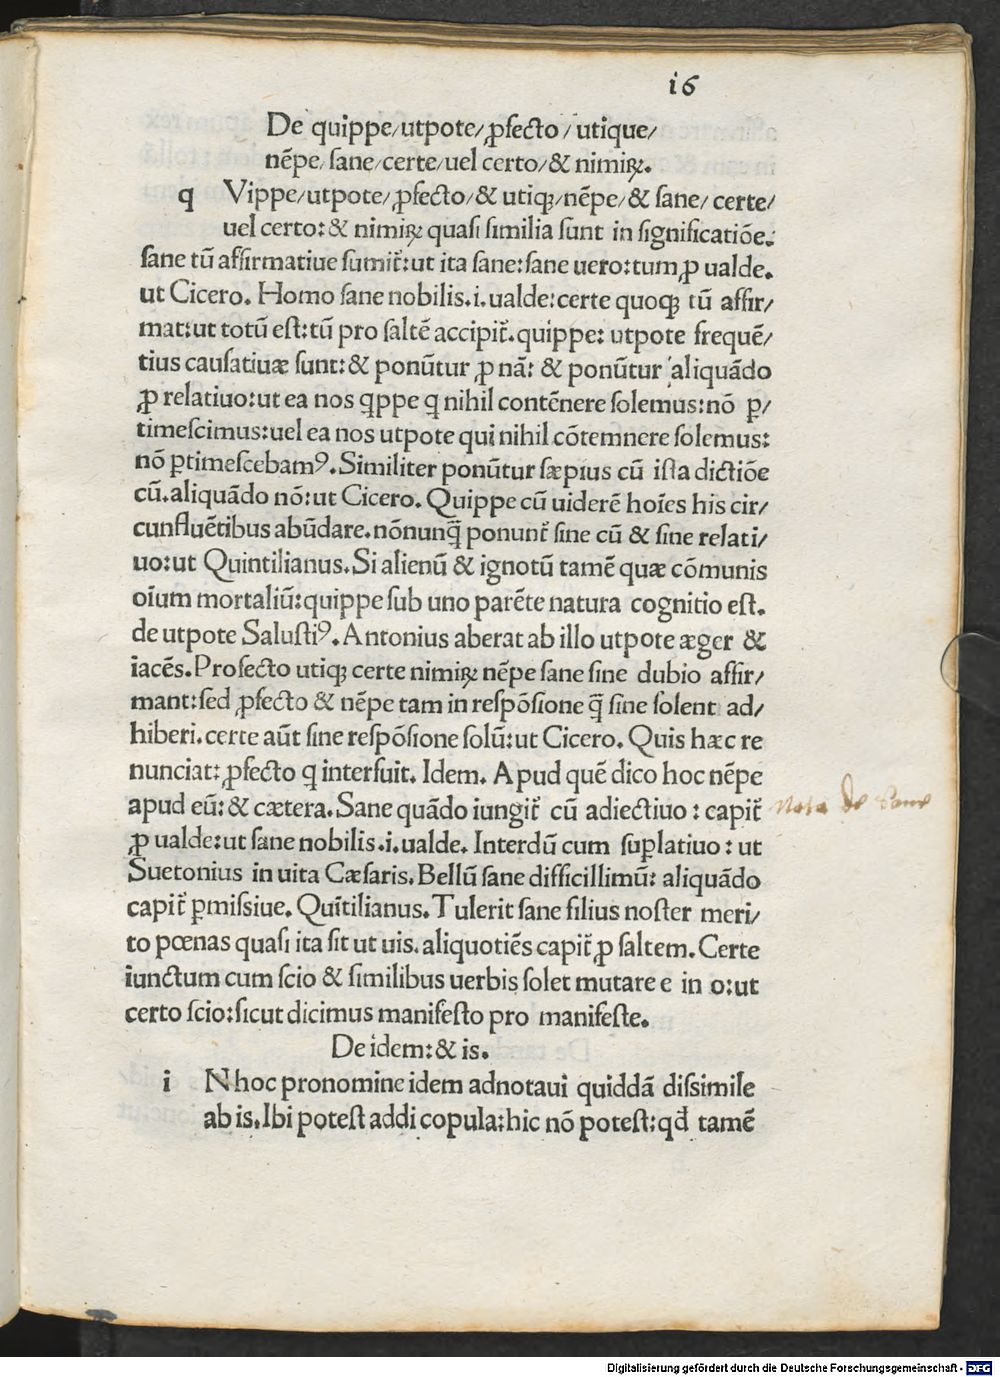 i6
De quippe/utpote/ꝓfecto/utique/
nēpe/sane/certe/uel certo/& nimiꝝ.
q Vippe/utpote/ꝓfecto/& utiqꝫ/nēpe/& sane/certe/
uel certo:& nimiꝝ quasi similia sunt in significatiōe:
sane tū affirmatiue sumit̄:ut ita sane:sane uero:tum ꝓ ualde.
ut Cicero. Homo sane nobilis.i.ualde:certe quoqꝫ tū affir/
mat:ut totū est:tū pro saltē accipit̄.quippe: utpote frequē/
tius causatiuæ sunt:& ponūtur ꝓ nā: & ponūtur aliquādo
ꝓ relatiuo:ut ea nos qppe q nihil contēnere solemus:nō ꝑ/
timescimus:uel ea nos utpote qui nihil cōtemnere solemus:
nō ꝑtimescebamꝰ. Similiter ponūtur sæpius cū ista dictiōe
cū.aliquādo nō:ut Cicero. Quippe cū uiderē hoīes his cir/
cunfluētibus abūdare.nōnunq̄ ponunt̄ sine cū & sine relati/
uo:ut Quintilianus.Si alienū & ignotū tamē quæ cōmunis
oīum mortaliū:quippe sub uno parēte natura cognitio est.
de utpote Salustiꝰ. Antonius aberat ab illo utpote æger &
iacēs.Profecto utiqꝫ certe nimiꝝ nēpe sane sine dubio affir/
mant:sed ꝓfecto & nēpe tam in respōsione q̄ sine solent ad/
hiberi.certe aūt sine respōsione solū:ut Cicero. Quis hæc re
nunciat: ꝓfecto q interfuit. Idem. Apud quē dico hoc nēpe
apud eū: & cætera. Sane quādo iungit̄ cū adiectiuo : capit̄
ꝓ ualde:ut sane nobilis.i.ualde. Interdū cum suꝑlatiuo : ut
Suetonius in uita Cæsaris. Bellū sane difficillimū: aliquādo
capit̄ ꝑmissiue. Quītilianus. Tulerit sane filius noster meri/
to pœnas quasi ita sit ut uis.aliquotiēs capit̄ ꝓ saltem. Certe
iunctum cum scio & similibus uerbis solet mutare e in o:ut
certo scio:sicut dicimus manifesto pro manifeste.
De idem:& is.
i N hoc pronomine idem adnotaui quiddā dissimile
ab is.Ibi potest addi copula:hic nō potest:qđ tamē
Nota de Sane
Digitalisierung gefördert durch die Deutsche Forschungsgemeinschaft - DFG